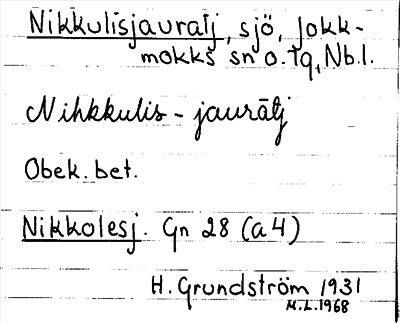 Nikkulisjauratj, sjö, Jokk-
mokks sn o. tg, Nb.l.
Nihkkulis-jaurātj
Obek. bet.
Nikkolesj. Gn 28 (a4)
H. Grundström 1931
M.L. 1968